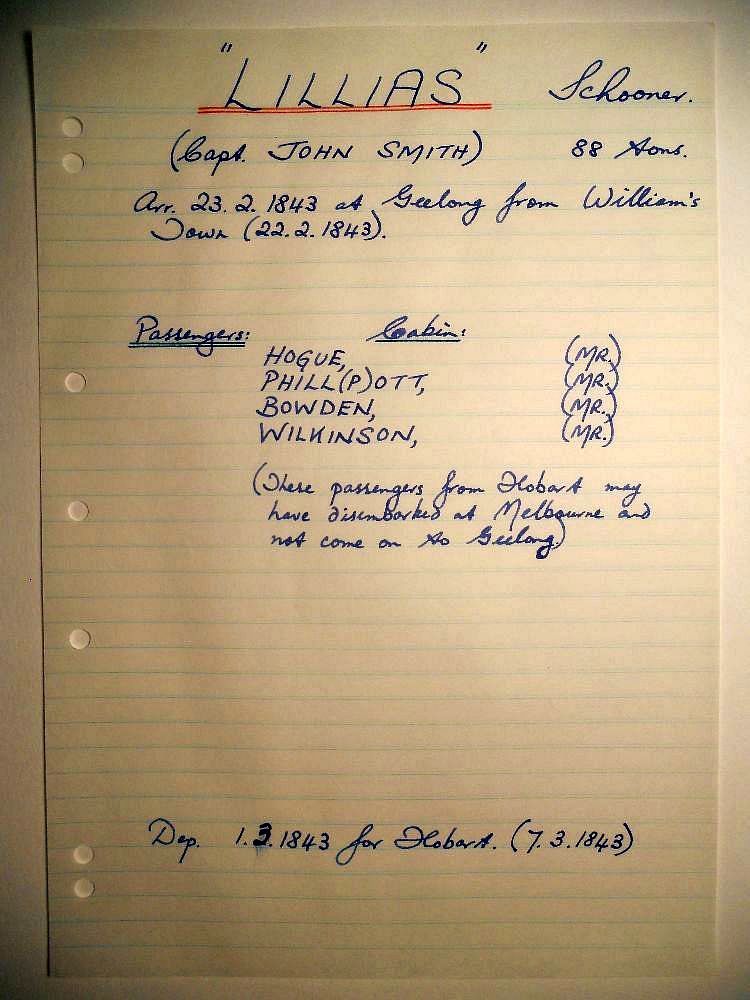 "LILLIAS" Schooner.
(Capt. JOHN SMITH) 88 tons.
Arr. 23.2.1843 at Geelong from William's
Town (22.2.1843).
Passengers: Cabin:
HOGUE, (MR.)
PHILL(P)OTT, (MR.)
BOWDEN, (MR.)
WILKINSON, (MR.)
(These passengers from Hobart may
have disembarked at Melbourne and
not come on to Geelong.)
Dep. 1.3.1843 for Hobart. (7.3.1843)